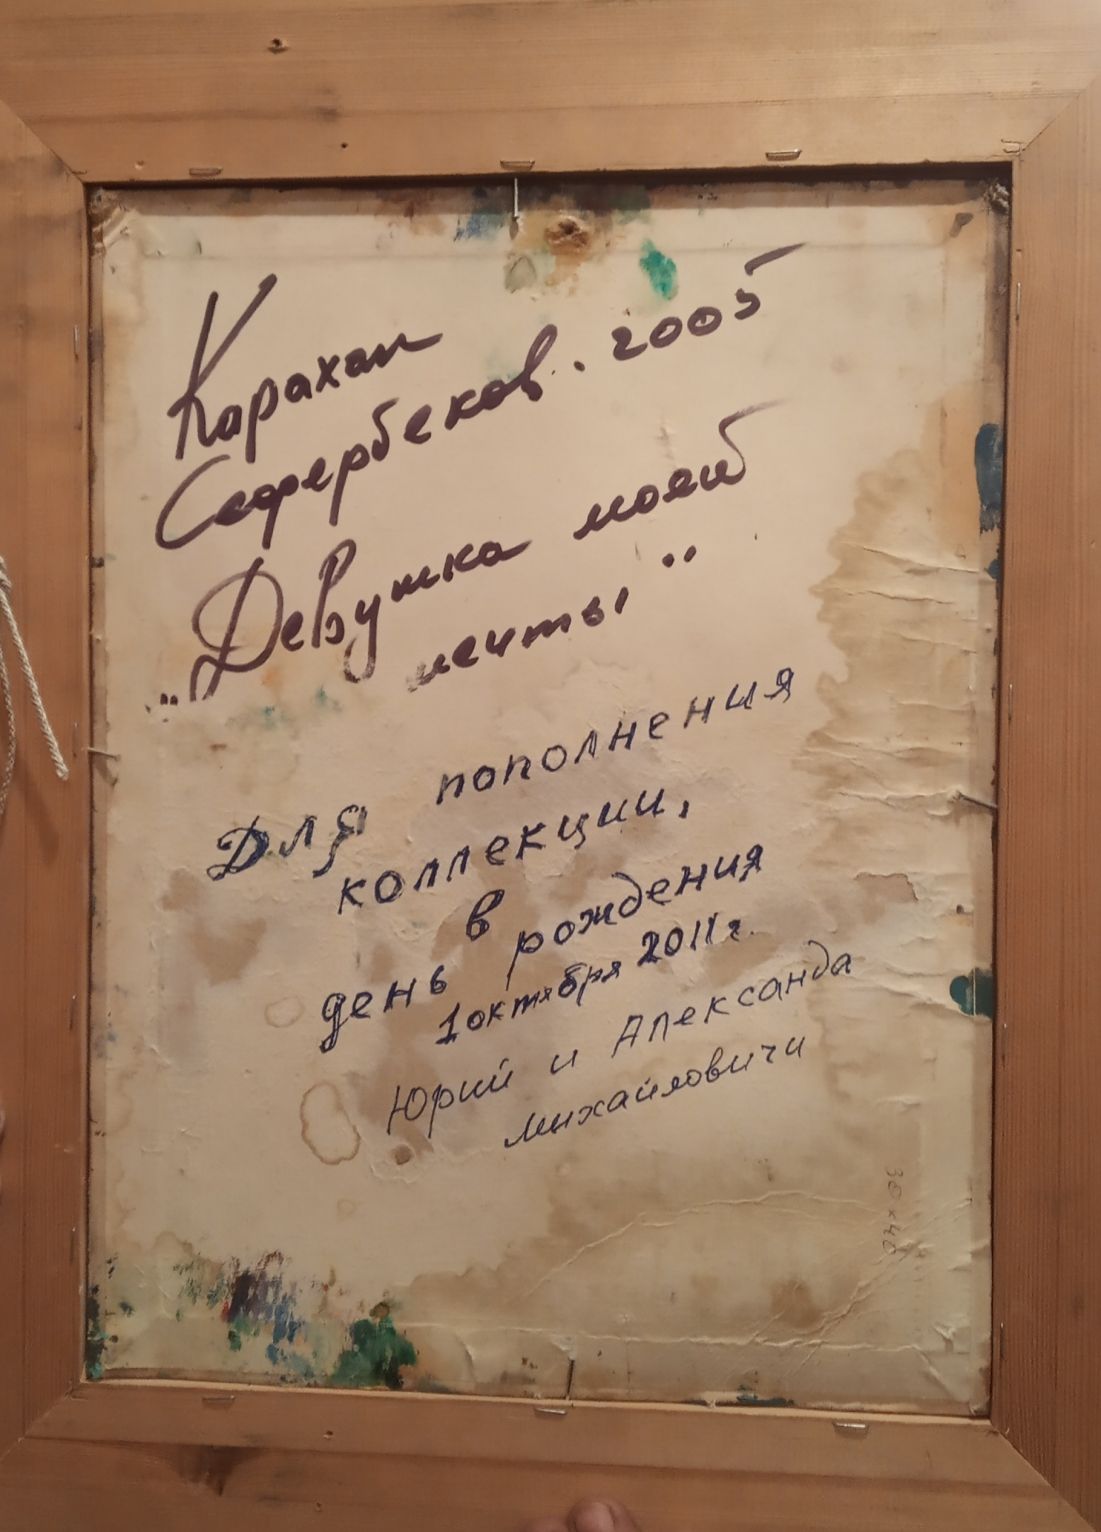 Карахан
Сефербеков. 2005
„Девушка моей
мечты"
Для пополнения
коллекции,
в
день рождения
1 октября 2011 г.
Юрий и Александа
Михайловичи
30×40